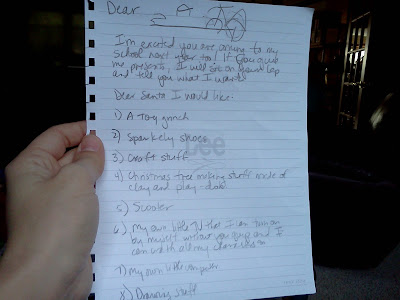 Dear
I'm excited you are coming to my
school next year too! If you give
me presents, I will sit on your lap
and tell you what I want!
Dear Santa I would like:
1) A toy grinch
2) Sparkely shoes
3) Craft stuff
4) Christmas tree making stuff made of
clay and play-doh
5) Scooter
6) My own little TV that I can turn on
by myself without you and I
can watch all my
7) My own little computer
8) Drawing stuff